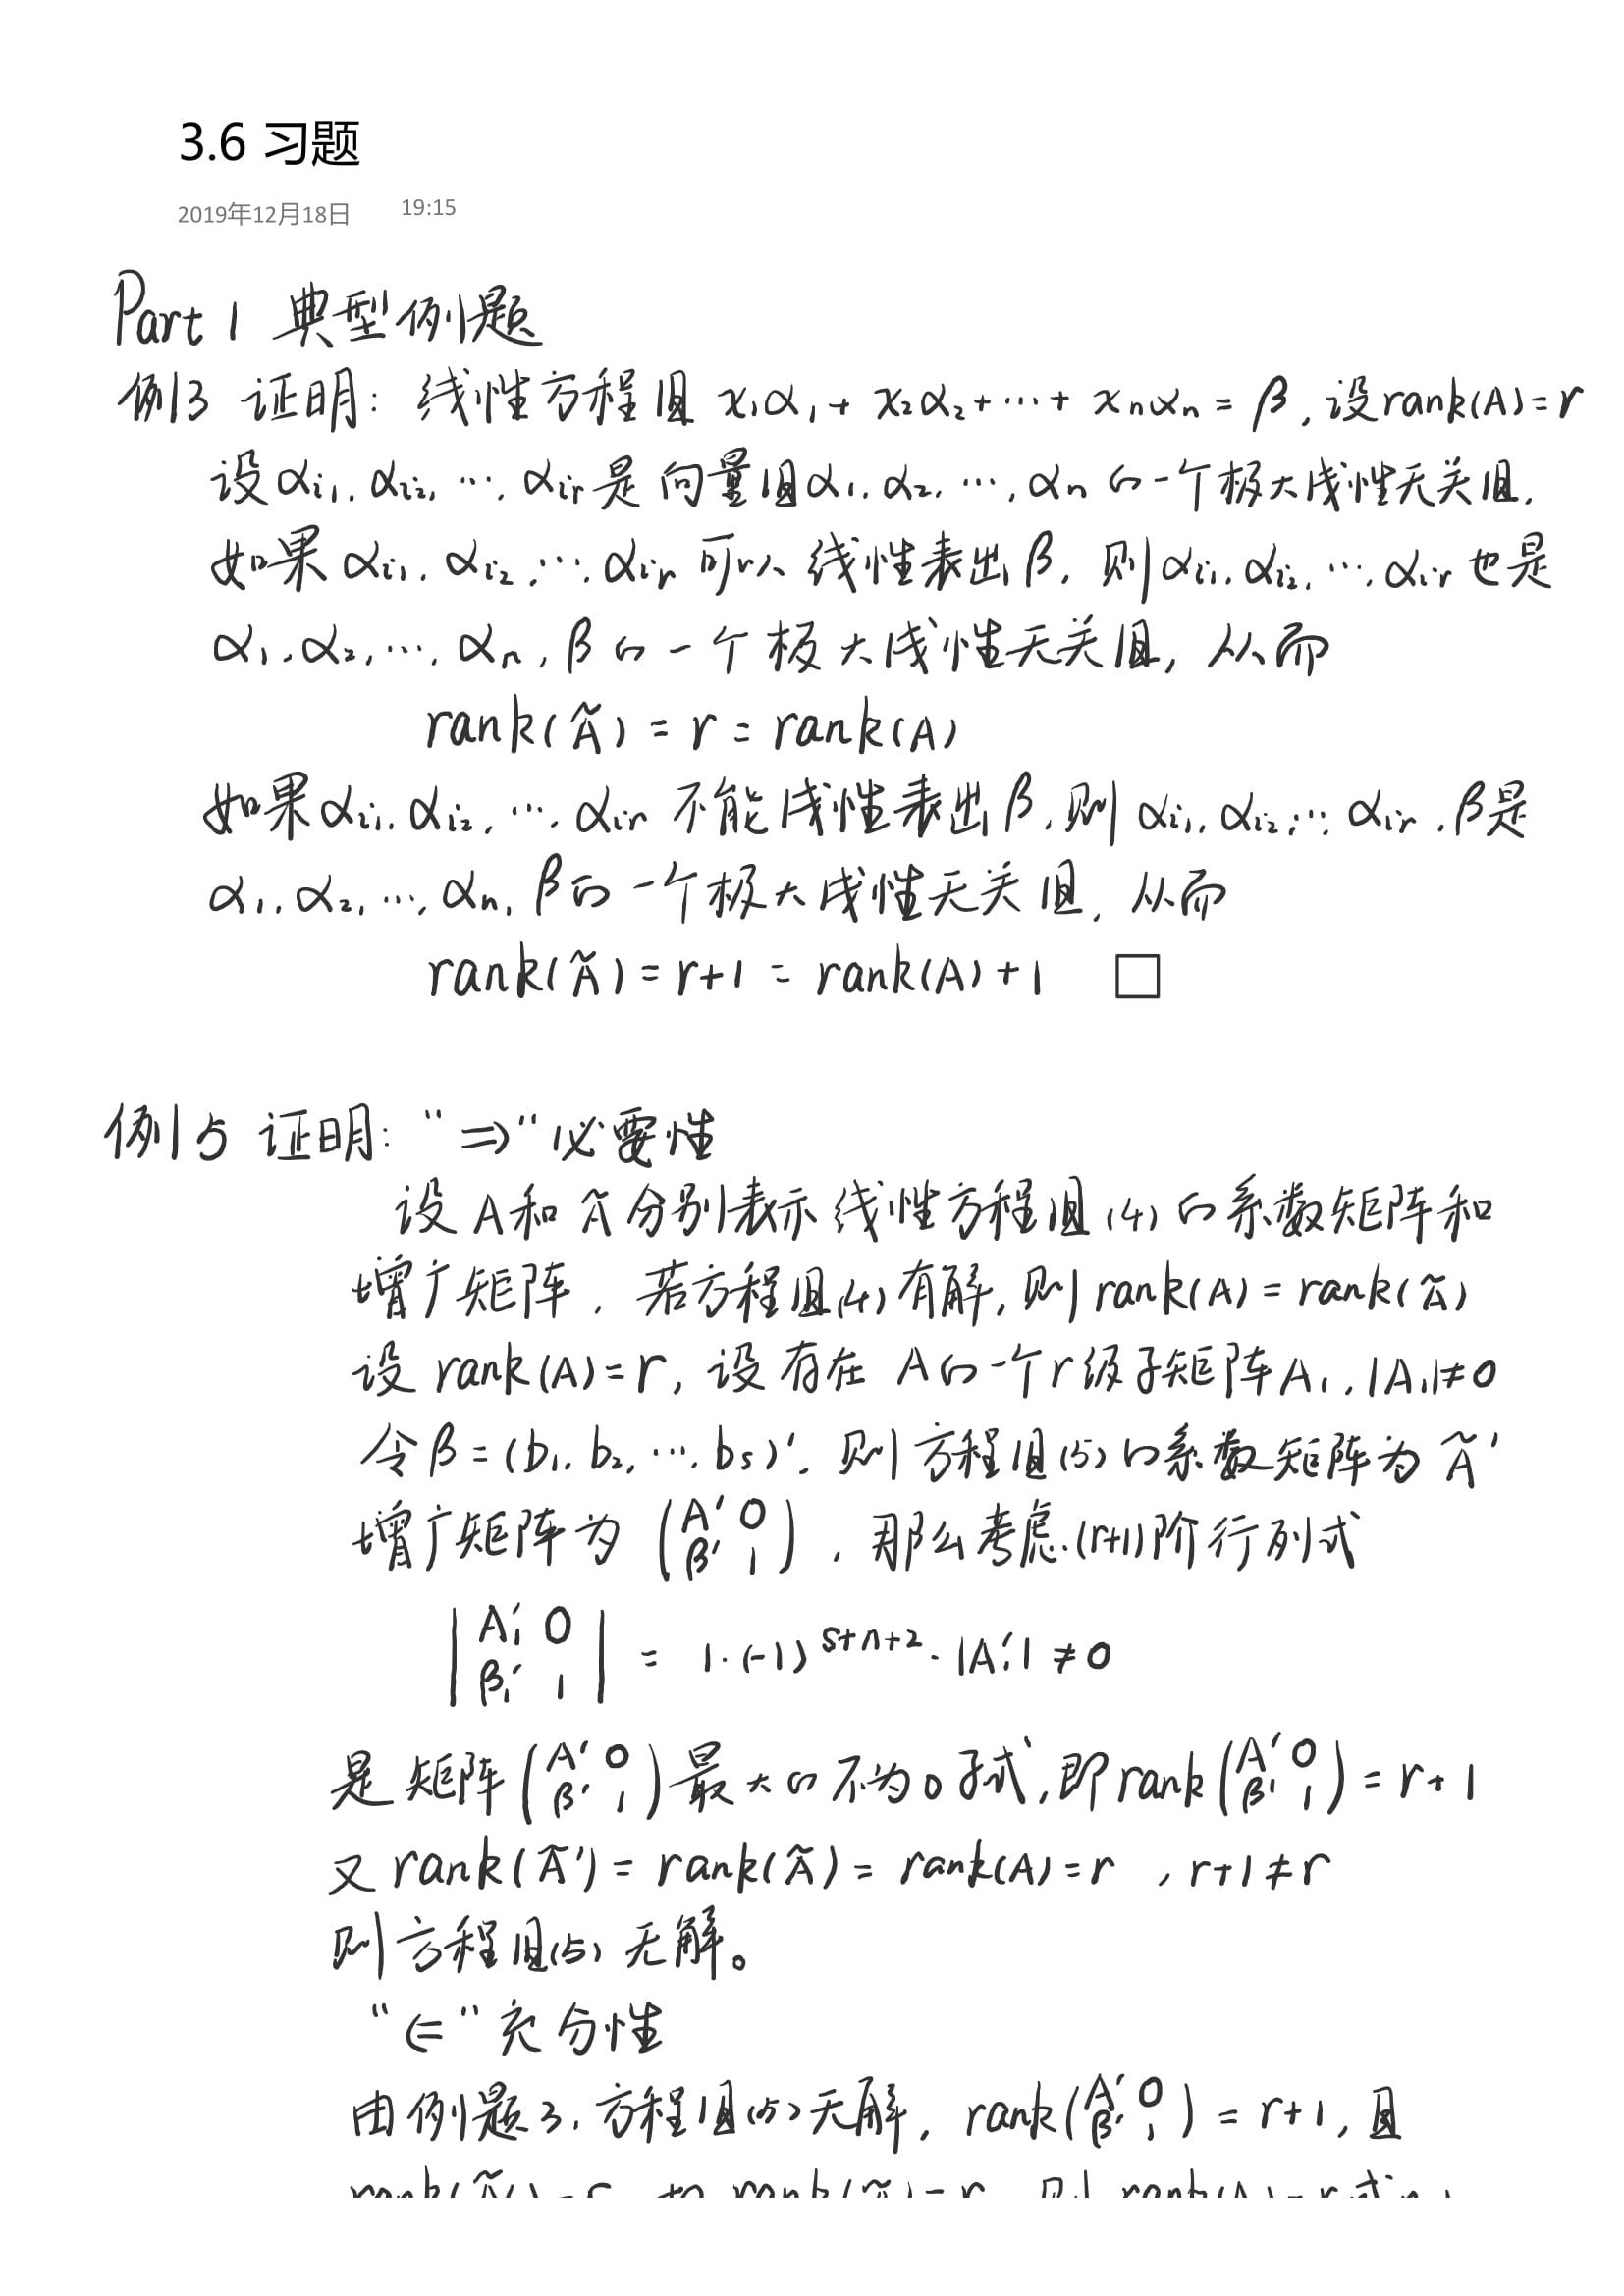 3.6 习题
2019年12月18日 19:15
Part 1 典型例题
例3 证明: 线性方程组 x₁α₁+ x₂α₂+⋯+ xₙαₙ = β, 设rank(A)=r
设αi₁, αi₂, ⋯, αir是向量组α₁, α₂, ⋯, αₙ的一个极大线性无关组,
如果 αi₁, αi₂, ⋯, αir 可以线性表出β, 则αi₁, αi₂, ⋯, αir也是
α₁, α₂, ⋯, αₙ, β的一个极大线性无关组, 从而
rank(Ã) = r = rank(A)
如果αi₁, αi₂, ⋯, αir不能线性表出β, 则 αi₁, αi₂, ⋯ αir, β是
α₁, α₂, ⋯, αₙ, β的一个极大线性无关组, 从而
rank(Ã) = r+1 = rank(A)+1 □
例5 证明: "⇒"必要性
设A和Ã分别表示线性方程组(4)的系数矩阵和
增广矩阵, 若方程组(4)有解, 则rank(A) = rank(Ã)
设 rank(A)=r, 设存在 A的一个r级子矩阵A₁, |A₁|≠0
令β=(b₁, b₂, ⋯, bs)′, 则方程组(5)的系数矩阵为Ã′
增广矩阵为 (A′ 0 β′ 1), 那么考虑(r+1)阶行列式
|A₁′ 0 β₁′ 1| = 1·(-1)^{s+n+2}·|A₁′| ≠0
是矩阵(A′ 0 β′ 1)最大的不为0子式, 即rank(A′ 0 β′ 1) = r+1
又 rank(Ã′) = rank(Ã) = rank(A) = r , r+1≠r
则方程组(5)无解。
"⇐"充分性
由例题3, 方程组(5)无解, rank(A′ 0 β′ 1) = r+1, 且